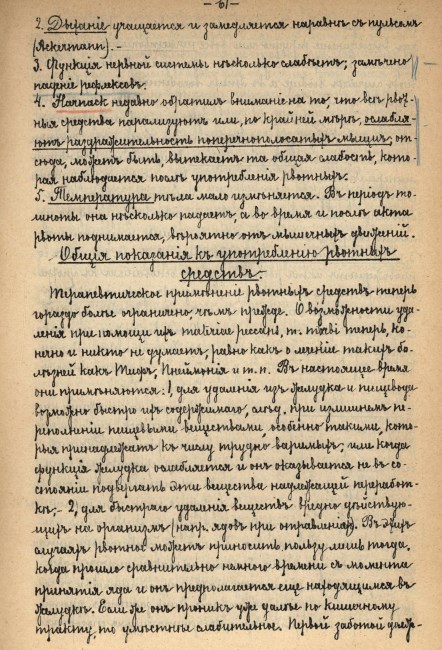 — 61 —
2. Дыханіе учащается и замедляется наравнѣ съ пульсомъ
(Ackermann). —
3. Функція нервной системы нѣсколько слабѣетъ; замѣчено
паденіе рефлексовъ.
4. Harnack недавно обратилъ вниманіе на то, что всѣ рвот-
ныя средства парализуютъ или, по крайней мѣрѣ, ослабля-
ютъ раздражительность поперечнополосатыхъ мышцъ; от-
сюда, можетъ быть, вытекаетъ та общая слабость, кото-
рая наблюдается послѣ употребленія рвотныхъ.
5. Температура тѣла мало измѣняется. Въ періодъ то-
шноты она нѣсколько падаетъ, а во время и послѣ акта
рвоты поднимается, вѣроятно отъ мышечныхъ движеній.
Общія показанія къ употребленію рвотныхъ
средствъ.
Терапевтическое примѣненіе рвотныхъ средствъ теперь
гораздо болѣе ограничено, чѣмъ прежде. О возможности уда-
ленія при помощи ихъ materiae peccans, m. morbi теперь, ко-
нечно и никто не думаетъ, равно какъ о леченіи такихъ бо-
лѣзней какъ Тифъ, Пнеймонія и т. п. Въ настоящее время
они примѣняются: 1, для удаленія изъ желудка и пищевода
возможно быстро ихъ содержимаго, слѣд. при излишнемъ пе-
реполненіи пищевыми веществами особенно такими, кото-
рыя принадлежатъ къ числу трудно варимыхъ; или когда
функція желудка ослабляется и онъ оказывается не въ со-
стояніи подвергать эти вещества надлежащей переработ-
кѣ; – 2, для быстраго удаленія веществъ вредно дѣйствую-
щихъ на организмъ (напр. ядовъ при отравленіяхъ). Въ этихъ
случаяхъ рвотное можетъ приносить пользу лишь тогда,
когда прошло сравнительно немного времени съ момента
принятія яда и онъ предполагается еще находящимся въ
желудкѣ. Если же онъ проникъ уже далѣе по кишечному
тракту, то умѣстнѣе слабительное. Первой заботой дѣлъ-